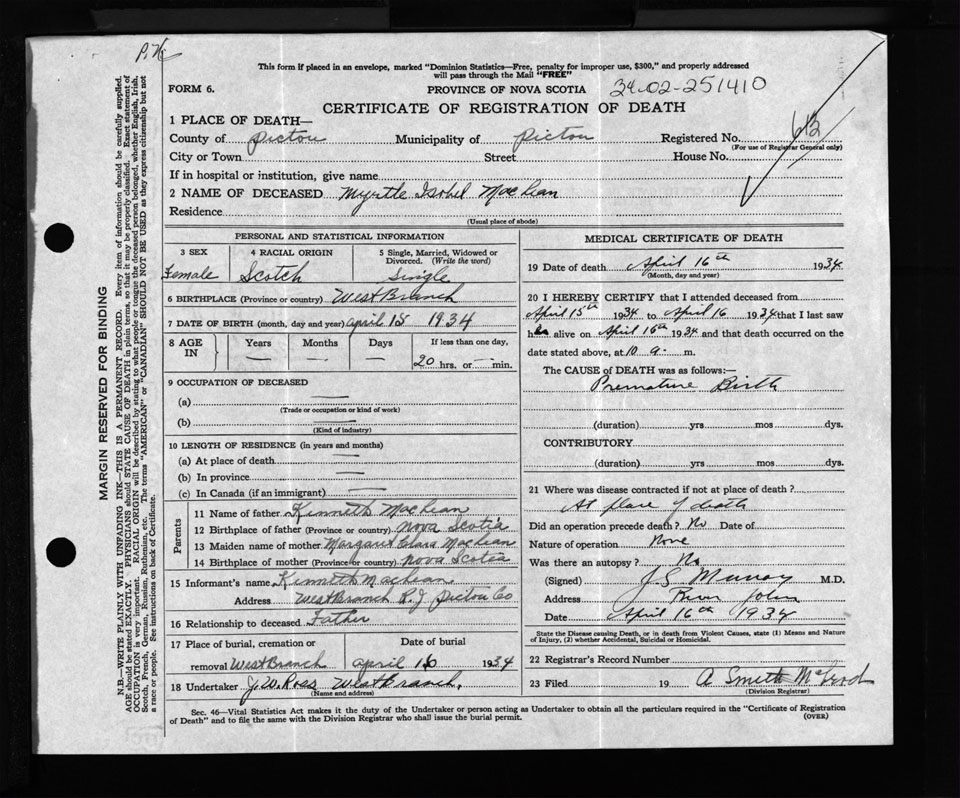 P.W
This form if placed in an envelope, marked "Dominion Statistics—Free, penalty for improper use, $300," and properly addressed
will pass through the Mail "FREE"
FORM 6.
PROVINCE OF NOVA SCOTIA
34-02-251410
CERTIFICATE OF REGISTRATION OF DEATH
1 PLACE OF DEATH—
County of Pictou Municipality of Pictou Registered No. 613
(For use of Registrar General only)
City or Town Street House No.
If in hospital or institution, give name
2 NAME OF DECEASED Myrtle Isobel MacLean
Residence
(Usual place of abode)
PERSONAL AND STATISTICAL INFORMATION
3 SEX Female
4 RACIAL ORIGIN Scotch
5 Single, Married, Widowed or
Divorced. (Write the word)
Single
6 BIRTHPLACE (Province or country) West Branch
7 DATE OF BIRTH (month, day and year) April 15 1934
8 AGE IN
Years — Months — Days — If less than one day,
20 hrs. or — min.
9 OCCUPATION OF DECEASED
(a) —
(Trade or occupation or kind of work)
(b) —
(Kind of industry)
10 LENGTH OF RESIDENCE (in years and months)
(a) At place of death —
(b) In province —
(c) In Canada (if an immigrant) —
Parents
11 Name of father Kinneth MacLean
12 Birthplace of father (Province or country) Nova Scotia
13 Maiden name of mother Margaret Clara MacLean
14 Birthplace of mother (Province or country) Nova Scotia
15 Informant's name Kinneth MacLean
Address West Branch R.J Pictou Co
16 Relationship to deceased Father
17 Place of burial, cremation or Date of burial
removal West Branch April 16 1934
18 Undertaker J.W. Ross West Branch.
(Name and address)
MEDICAL CERTIFICATE OF DEATH
19 Date of death April 16th 1934
(Month, day and year)
20 I HEREBY CERTIFY that I attended deceased from
April 15th 1934 to April 16 1934 that I last saw
her alive on April 16th 1934 and that death occurred on the
date stated above, at 10 a. m.
The CAUSE of DEATH was as follows:—
Premature Birth
(duration) yrs mos dys.
CONTRIBUTORY
(duration) yrs mos dys.
21 Where was disease contracted if not at place of death?
At place of death
Did an operation precede death? No Date of
Nature of operation None
Was there an autopsy? No
(Signed) J S Murray M.D.
Address River John
Date April 16th 1934
State the Disease causing Death, or in death from Violent Causes, state (1) Means and Nature of
Injury, (2) whether Accidental, Suicidal or Homicidal.
22 Registrar's Record Number
23 Filed 19 A Smith McLeod
(Division Registrar)
Sec. 46—Vital Statistics Act makes it the duty of the Undertaker or person acting as Undertaker to obtain all the particulars required in the "Certificate of Registration
of Death" and to file the same with the Division Registrar who shall issue the burial permit.
(OVER)
MARGIN RESERVED FOR BINDING
N.B—WRITE PLAINLY WITH UNFADING INK—THIS IS A PERMANENT RECORD. Every item of information should be carefully supplied.
AGE should be stated EXACTLY. PHYSICIANS should STATE CAUSE OF DEATH in plain terms, so that it may be properly classified. Exact statement of
OCCUPATION is very important. RACIAL ORIGIN will be described by stating to what people or tongue the deceased person belonged, whether English, Irish,
Scotch, French, German, Russian, Ruthenian, etc. The terms "AMERICAN" or "CANADIAN" SHOULD NOT BE USED as they express citizenship but not
a race or people. See instructions on back of Certificate.